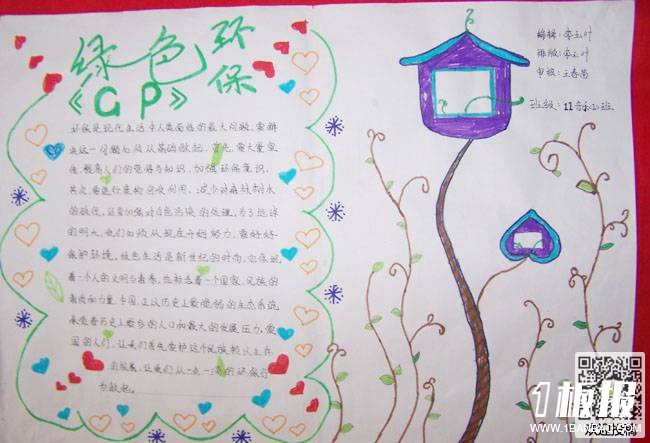 绿色环保
《GP》
编辑：李玉叶
排版：李玉叶
审核：王春苗
班级：11音乐班
环保是现代生活中人类面临的最大问题，要解
决这一问题必须从基础做起，首先，要大量宣
传，提高人们的觉悟与知识，加强环保意识。
其次，要进行废物回收利用，减少对森林树木
的砍伐，还要加强对白色污染的处理，为了地球
的明天，我们必须从现在开始努力，要好好
保护环境，
绿色生活是新世纪的时尚，它体现
着一个人的文明与素养，也标志着一个国家、民族的
素质和力量，中国，正以历史上最脆弱的生态系统，
承受着历史上最多的人口和最大的发展压力，爱
国的人们，让我们首先爱护这个民族赖以生存
的
让我们从一点一滴的环保行
为做起。
1板报
WWW.1BANBAO.COM